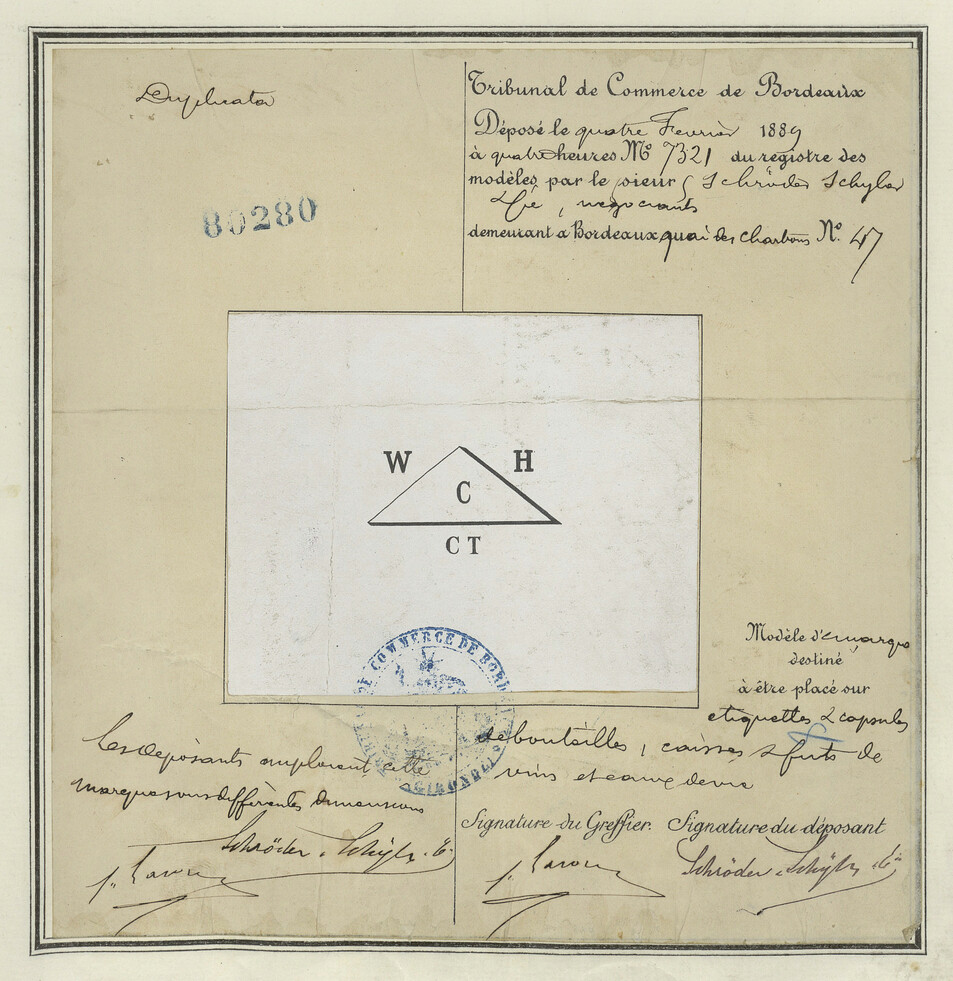 Duplicata
80280
Tribunal de Commerce de Bordeaux
Déposé le quatre Fevrier 1889
à quatre heures No 7321 du registre des
modèles par le sieurs Schröder Schyler
& Cie, negociants
demeurant a Bordeaux quai des Chartrons No. 47
W H
C
CT
COMMERCE DE BORDE
GIRONDE
Modèle de marque
destiné
à être placé sur
etiquettes & capsules
de bouteilles, caisses & futs de
vins et eaux de vie
Les deposants emploient cette
marque sous differentes dimensions
Schröder & Schÿler & Cie
Signature du Greffier. Signature du déposant
Schröder & Schÿler & Cie